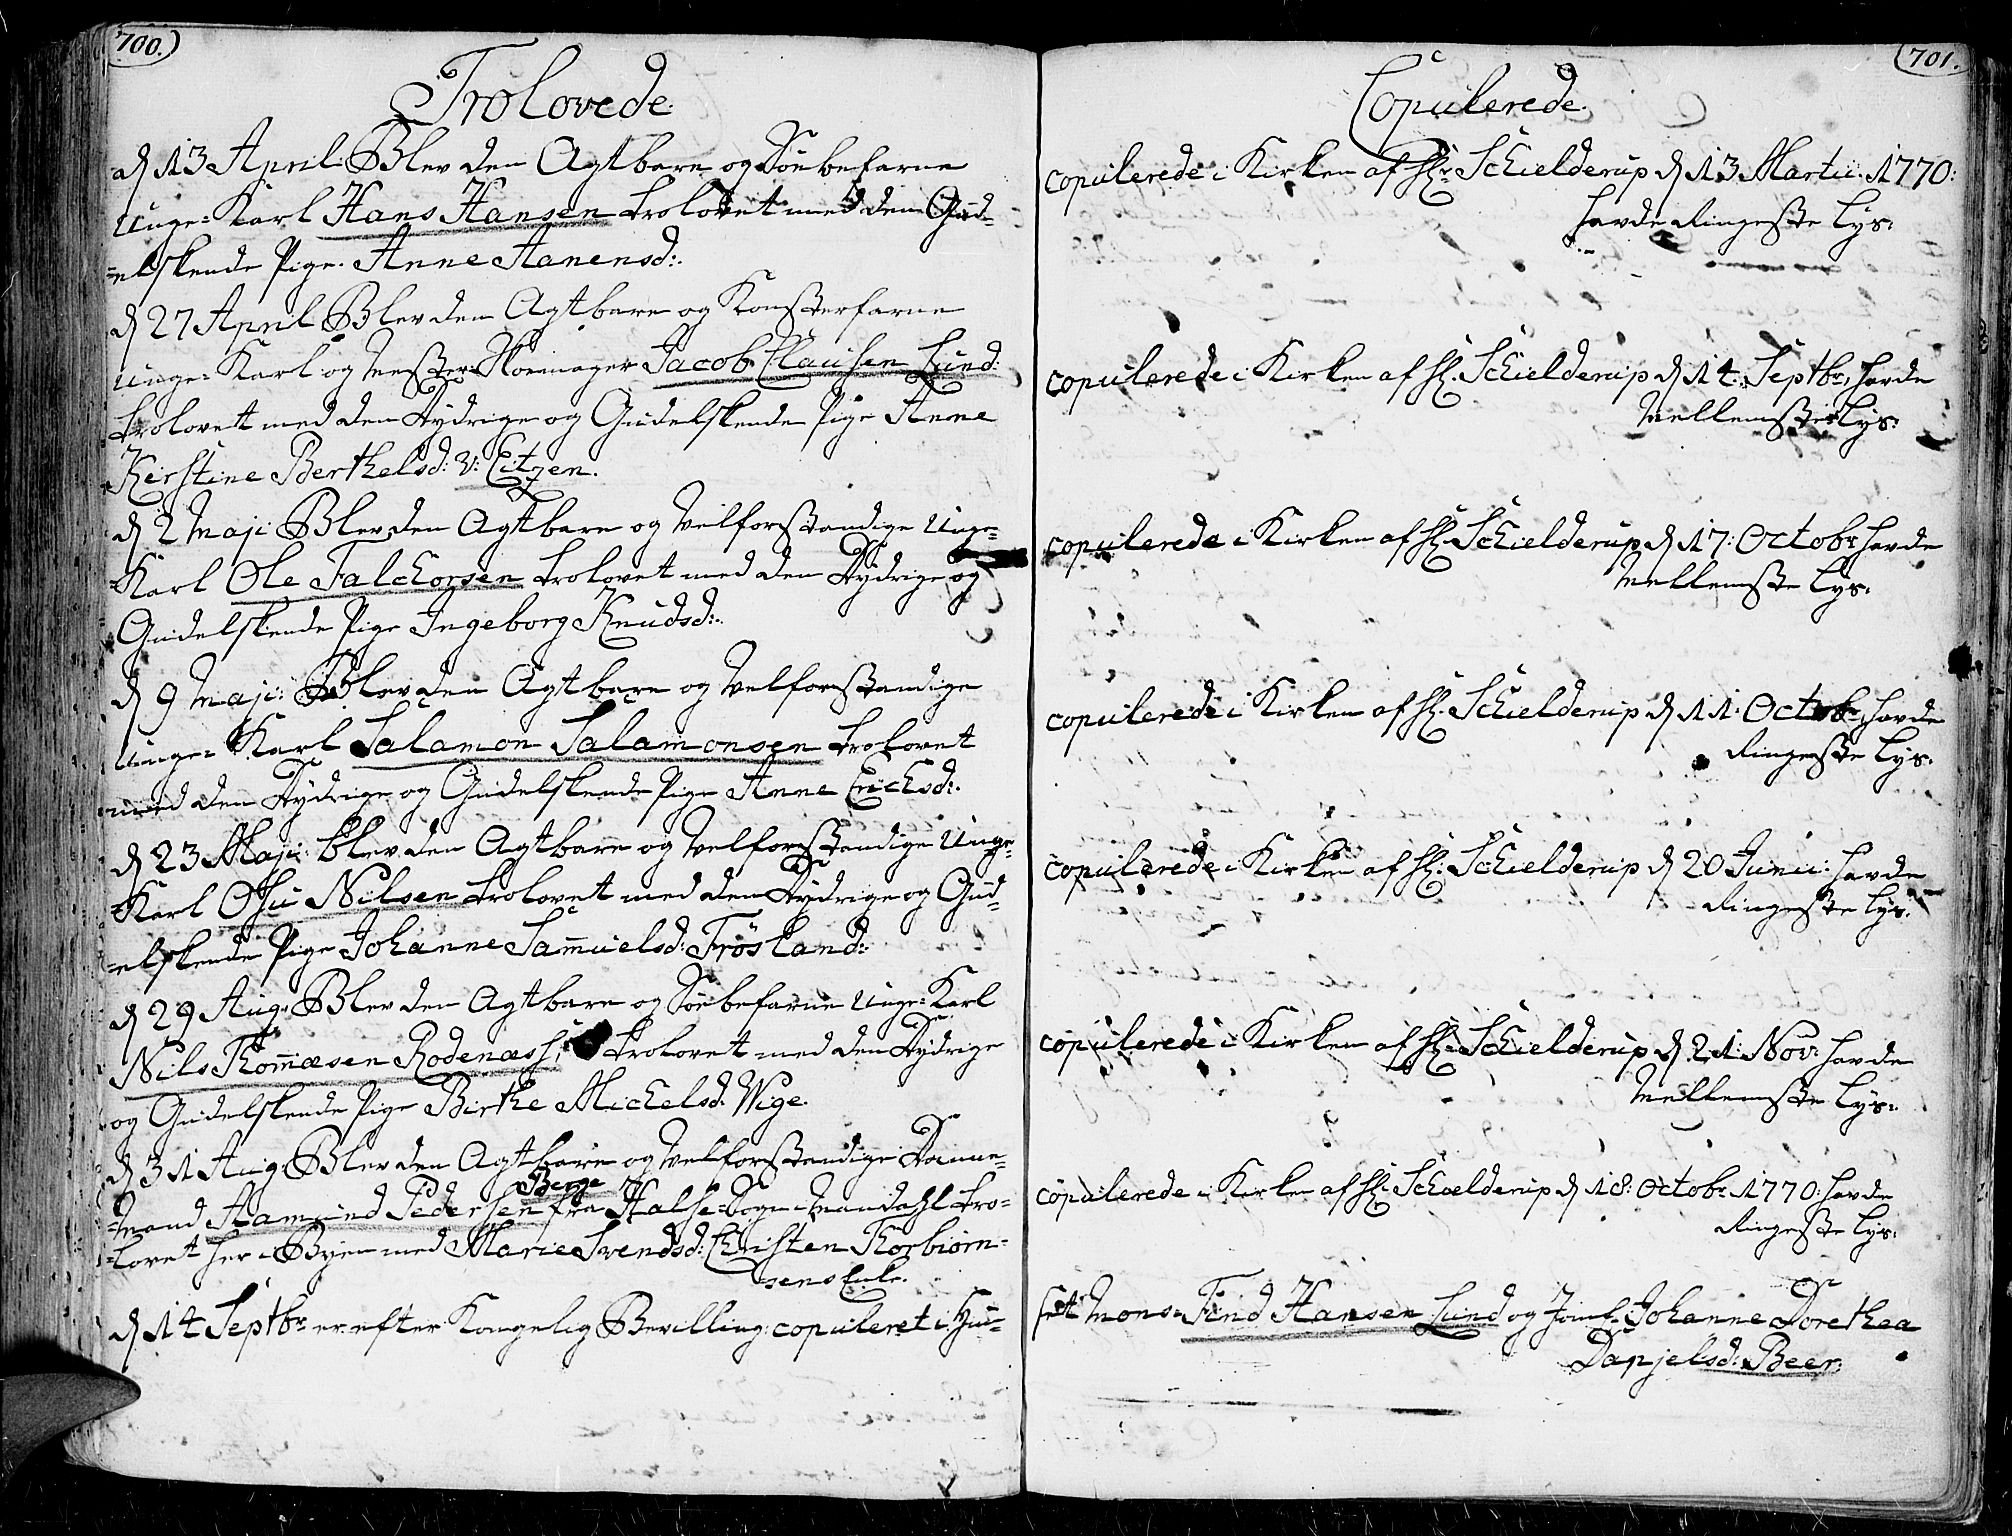 700.)
Trolovede.
d 13 April: Blev den Agtbare og Söebefarne
Unge= Karl Hans Hansen trolovet med den Gud=
=elskende Pige. Anne Aanensd:.
d 27 April Blev den Agtbare og Konsterfarne
unge= Karl og Mester Skoemager Jacob Clausen Lund:
trolovet med den Dydrige og Gudelskende Pige Anne
Kirstine Berthelsd: v: Eitzen.
d 2 Maji Blev den Agtbare og Velforstandige Unge=
Karl Ole Falchorsen trolovet med den Dydrige og
Gudelskende Pige Ingeborg Knudsd:.
d 9 Maji: Blev den Agtbare og Velforstandige
unge= Karl Salamon Salamonsen trolovet
med den Dydrige og Gudelskende Pige Anne Erichsd:.
d 23 Maji: blev den Agtbare og Velforstandige Unge=
Karl Osu Nilsen trolovet med den Dydrige og Gud=
=elskende Pige Johanne Samuelsd: Frösland:
d 29 Aug: Blev den Agtbare og Söebefarne Unge= Karl
Nils Thomæsen Rodenæss; trolovet med den Dydrige
og Gudelskende Pige Birthe Michelsd. Wige.
d 31 Aug: Blev den Agtbare og Velforstandige Danne=
Berge
=Mand Aamund Pedersen fra Halse= Sogn i Mandahl tro=
=lovet her i Byen med Marie Svendsd: Christen Thorbiörn=
sens Enke.
d 14 Septbr: er efter Kongelig Bevilling: copuleret i Hu=
(701.
Copulerede.
copulerede i Kirken af H: Schielderup d 13 Martii: 1770:
havde Ringeste Lys:
copulerede i Kirken af H: Schielderup d 14. Septbr: havde
Mellemste Lys:
copulerede i Kirken af H: Schielderup d 17: Octobr: havde
Mellemste Lys:
copulerede i Kirken af H: Schielderup d 11: Octobr: havde
Ringeste Lys:
copulerede i Kirken af H: Schielderup d 20 Junii: havde
Ringeste Lys:
copulerede i Kirken af H: Schielderup d 21: Nov: havde
Mellemste Lys:
copulerede i Kirken af H: Schielderup d 18: Octobr: 1770: havde
Ringeste Lys:
set Mons= Find Hansen Lund og Jomf: Johanne Dorethea
Danjelsd: Beer.